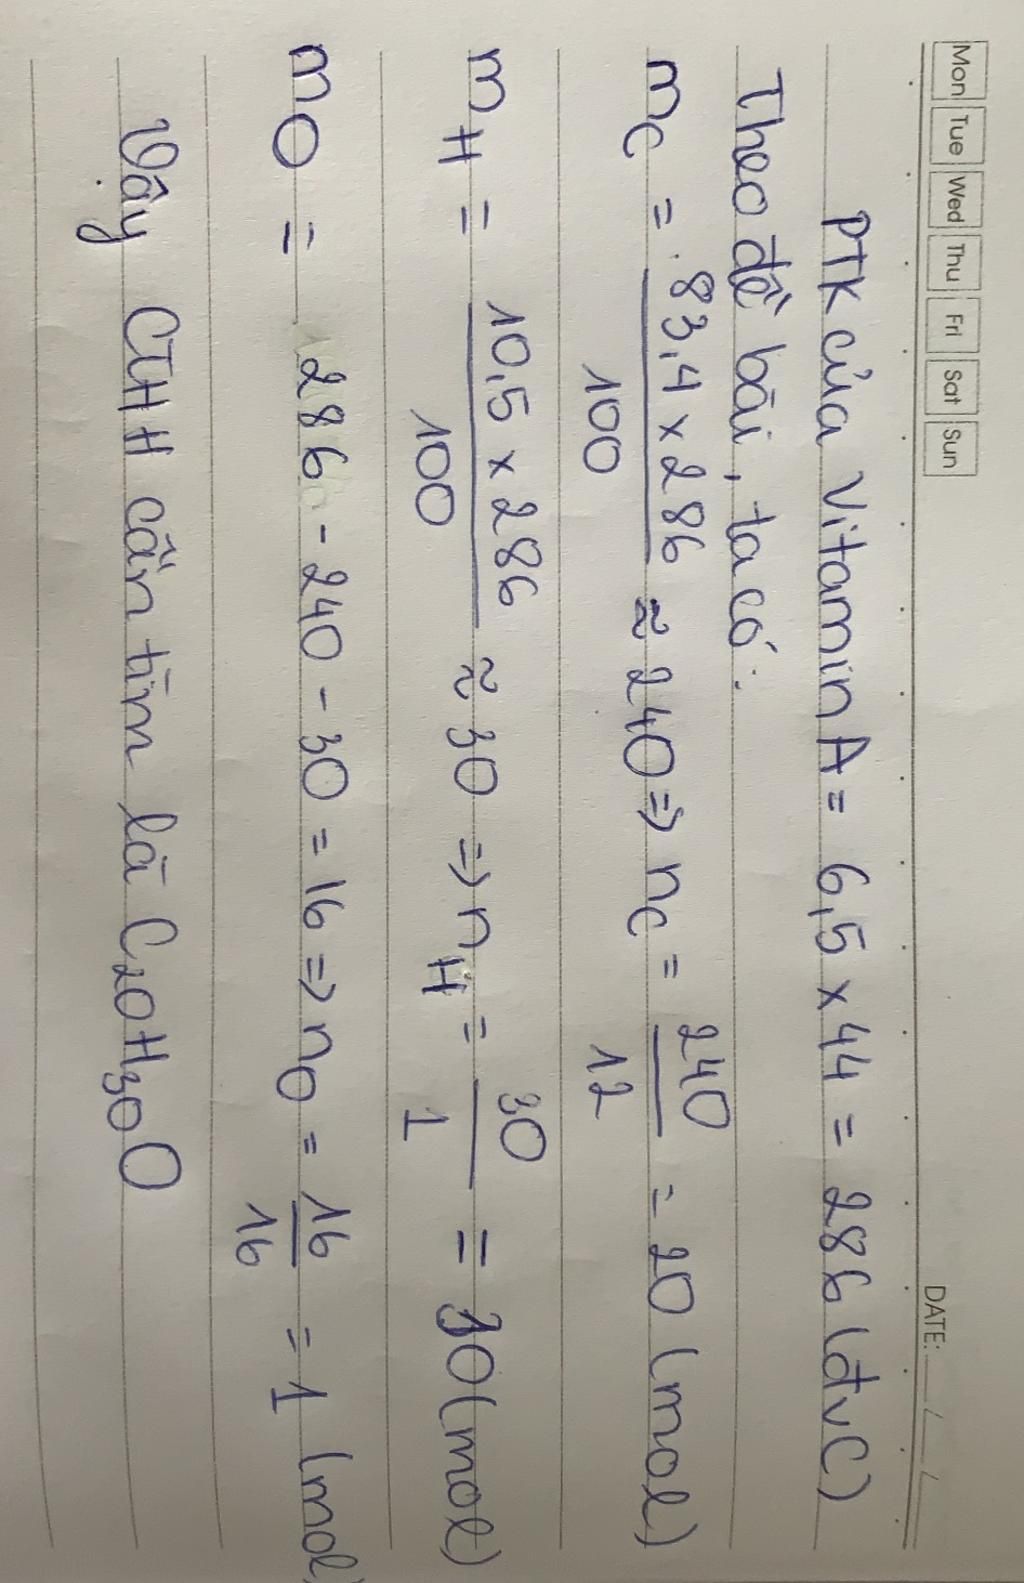 Mon Tue Wed Thu Fri Sat Sun DATE: / /
PTK của Vitamin A = 6,5 x 44 = 286 (đvC)
Theo đề bài, ta có:
mC = 83,4 x 286 / 100 ≈ 240 => nC = 240 / 12 = 20 (mol)
mH = 10,5 x 286 / 100 ≈ 30 => nH = 30 / 1 = 30 (mol)
mO = 286 - 240 - 30 = 16 => nO = 16 / 16 = 1 (mol)
Vậy CTHH cần tìm là C20H30O